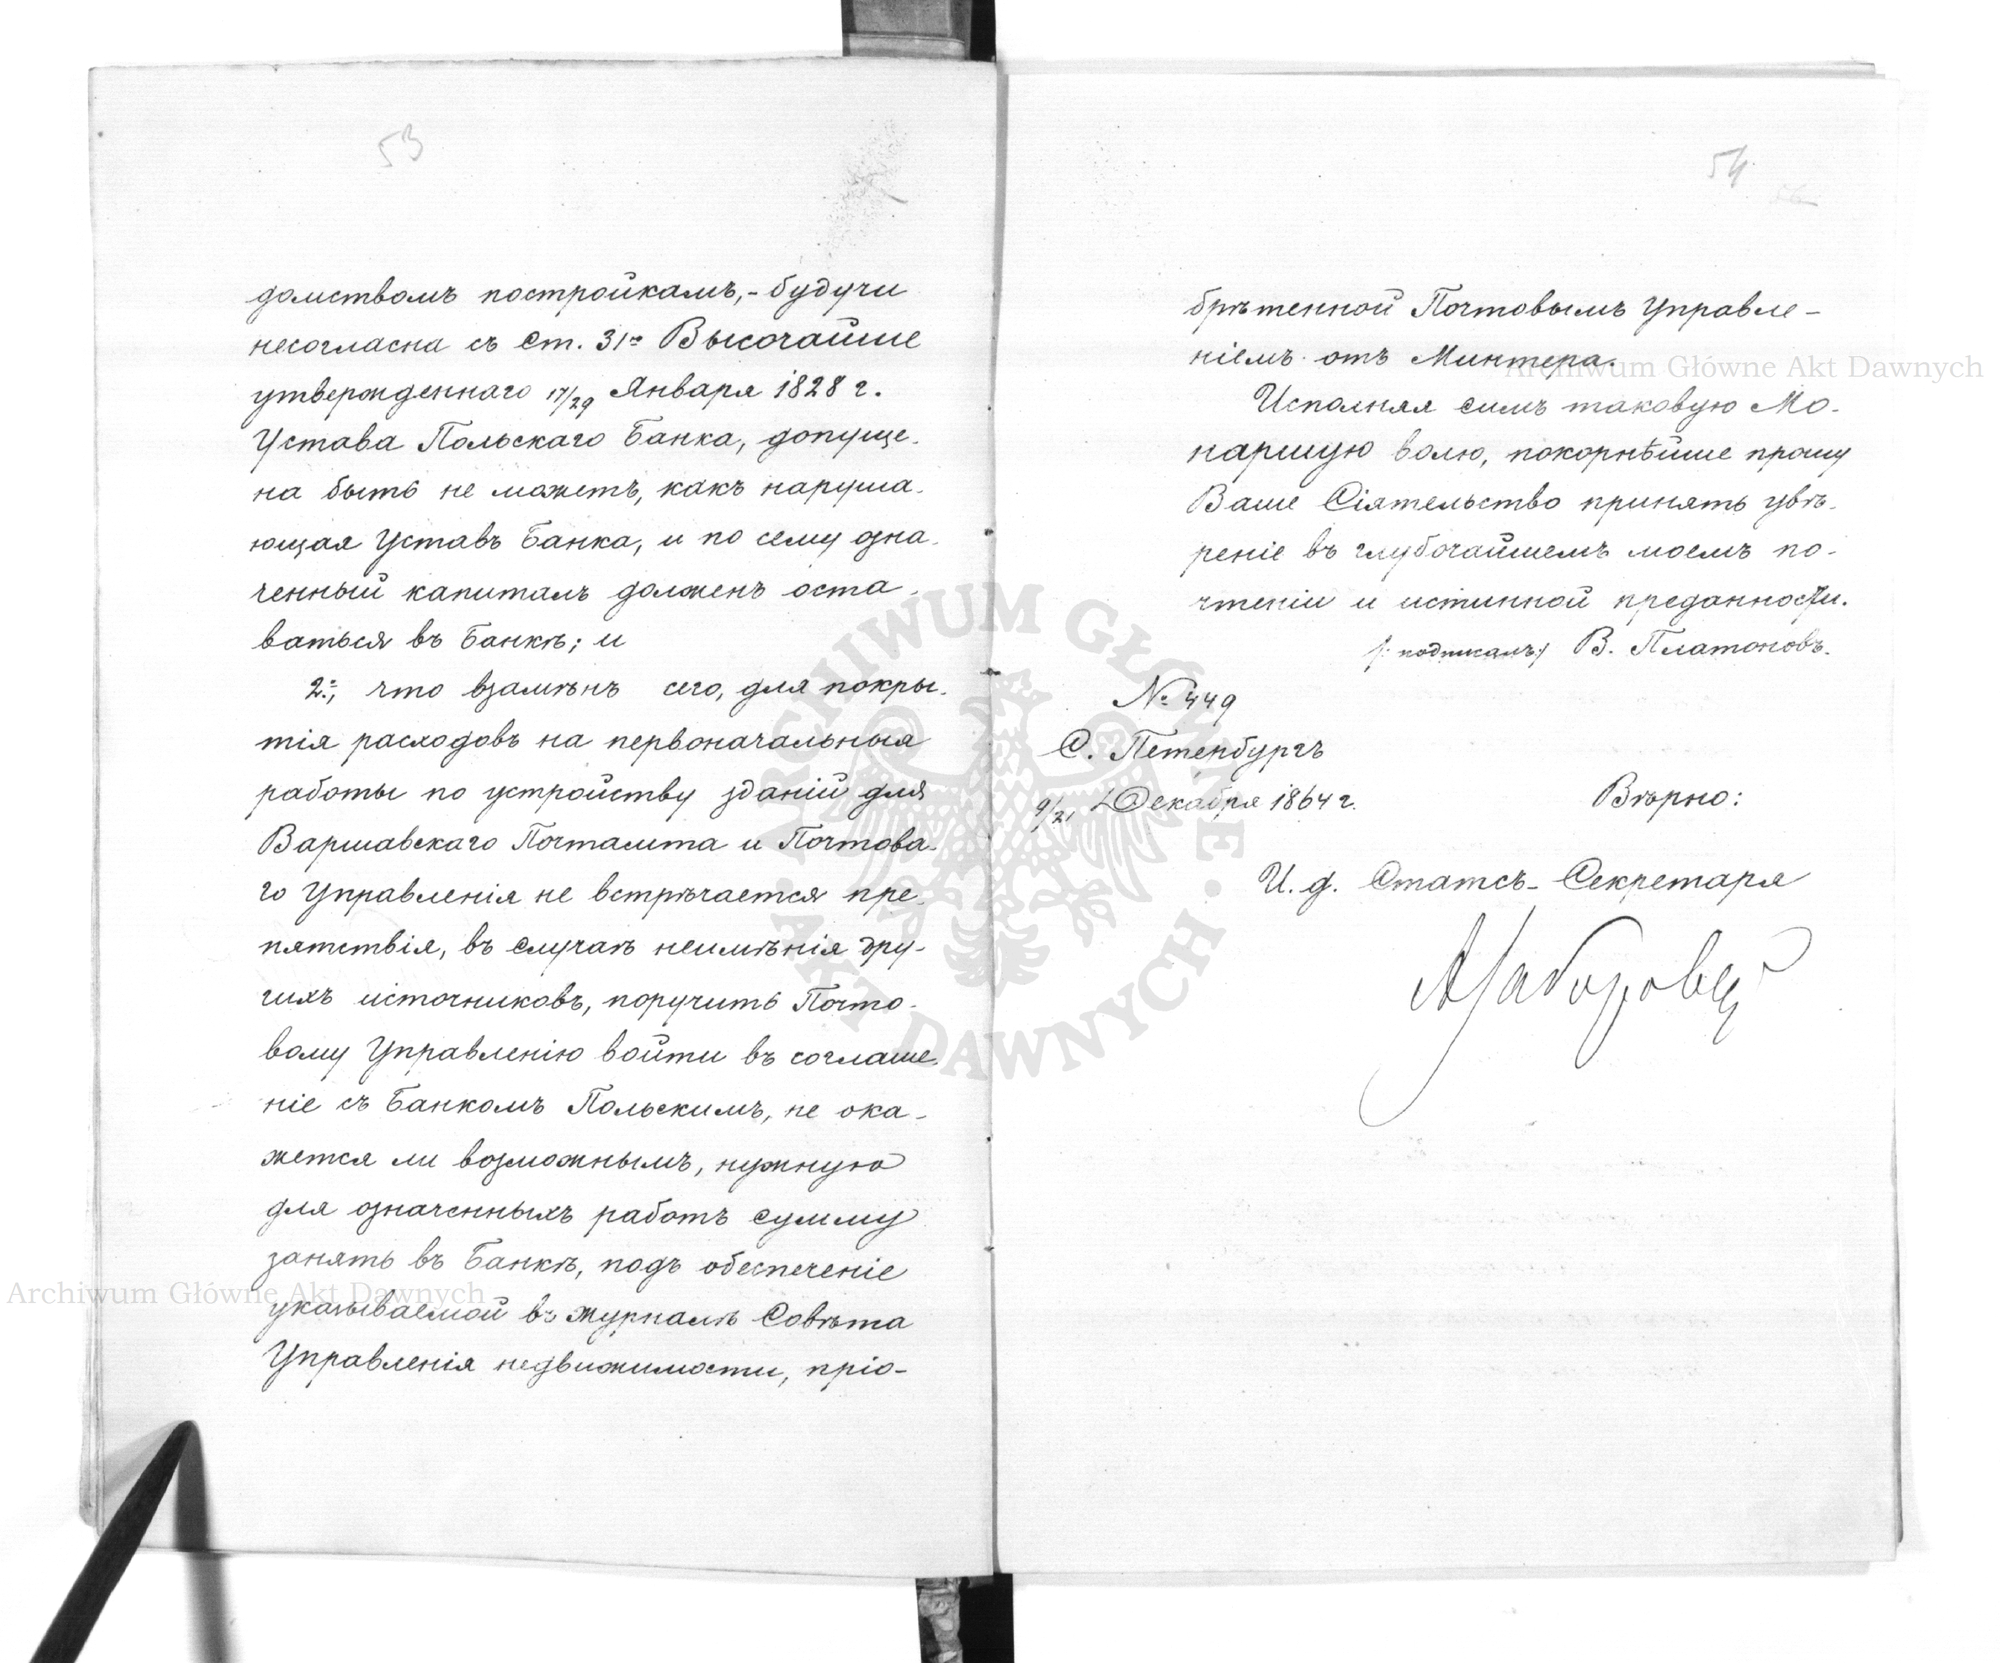 53
домствомъ постройкамъ,- будучи
несогласна съ Ст. 31ю Высочайше
утвержденнаго 17/29 Января 1828 г.
Устава Польскаго Банка, допуще-
на быть не можетъ, какъ наруша-
ющая Уставъ Банка, и по сему озна-
ченный капиталъ долженъ оста-
ваться въ Банкѣ; и
2е, что взамѣнъ сего, для покры-
тія расходовъ на первоначальныя
работы по устройству зданій для
Варшавскаго Почтамта и Почтова-
го Управленія не встрѣчается пре-
пятствія, въ случаѣ неимѣнія дру-
гихъ источниковъ, поручить Почто-
вому Управленію войти въ соглаше-
ніе съ Банкомъ Польскимъ, не ока-
жется ли возможнымъ, нужную
для означенныхъ работъ сумму
занять въ Банкѣ, подъ обеспеченіе
указываемой въ журналѣ Совѣта
Управленія недвижимости, пріо-
54
56
брѣтенной Почтовымъ Управле-
ніемъ отъ Минтера.
Исполняя симъ таковую Мо-
наршую волю, покорнѣйше прошу
Ваше Сіятельство принять увѣ-
реніе въ глубочайшемъ моемъ по-
чтеніи и истинной преданности.
/: подписалъ:/ В. Платоновъ.
№ 449
С. Петербургъ
9/21 Декабря 1864 г.
Вѣрно:
И. д. Статсъ-Секретаря
Archiwum Główne Akt Dawnych
Archiwum Główne Akt Dawnych
ARCHIWUM GŁÓWNE · AKT DAWNYCH ·